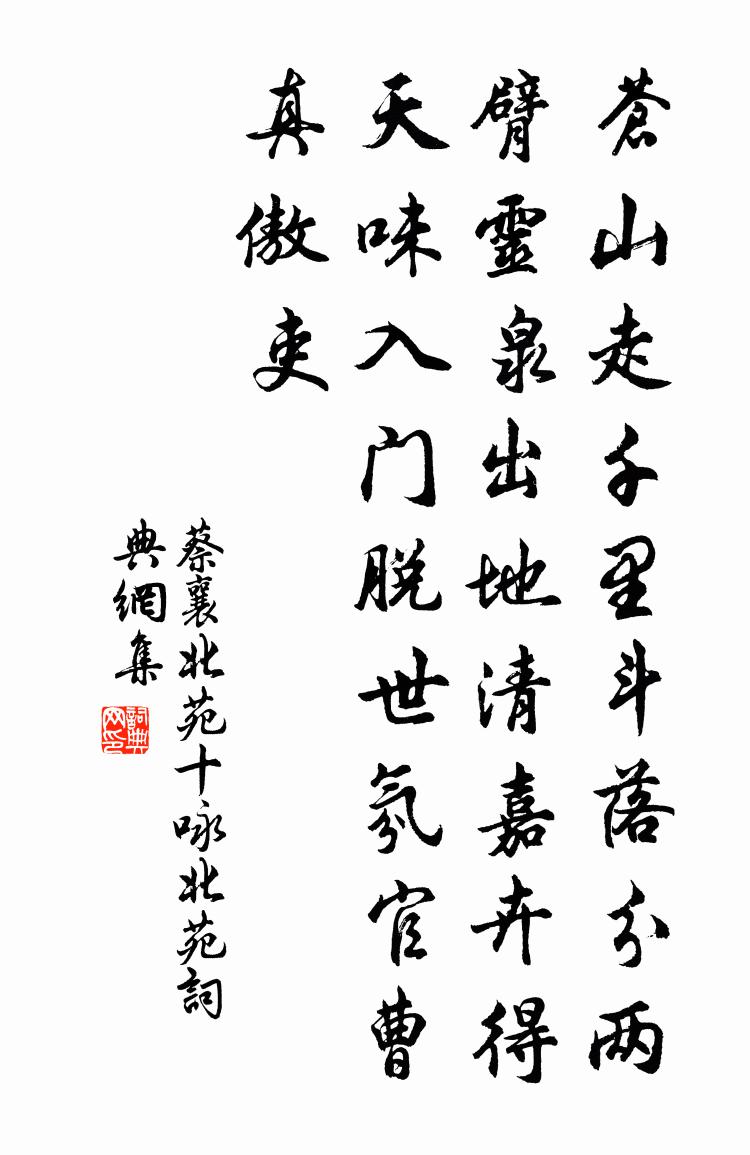 蒼山走千里斗落分两
臂靈泉出地清嘉卉得
天味入门脱世氛官曹
真傲吏
蔡襄北苑十咏北苑詞
典網集
詞典
网印